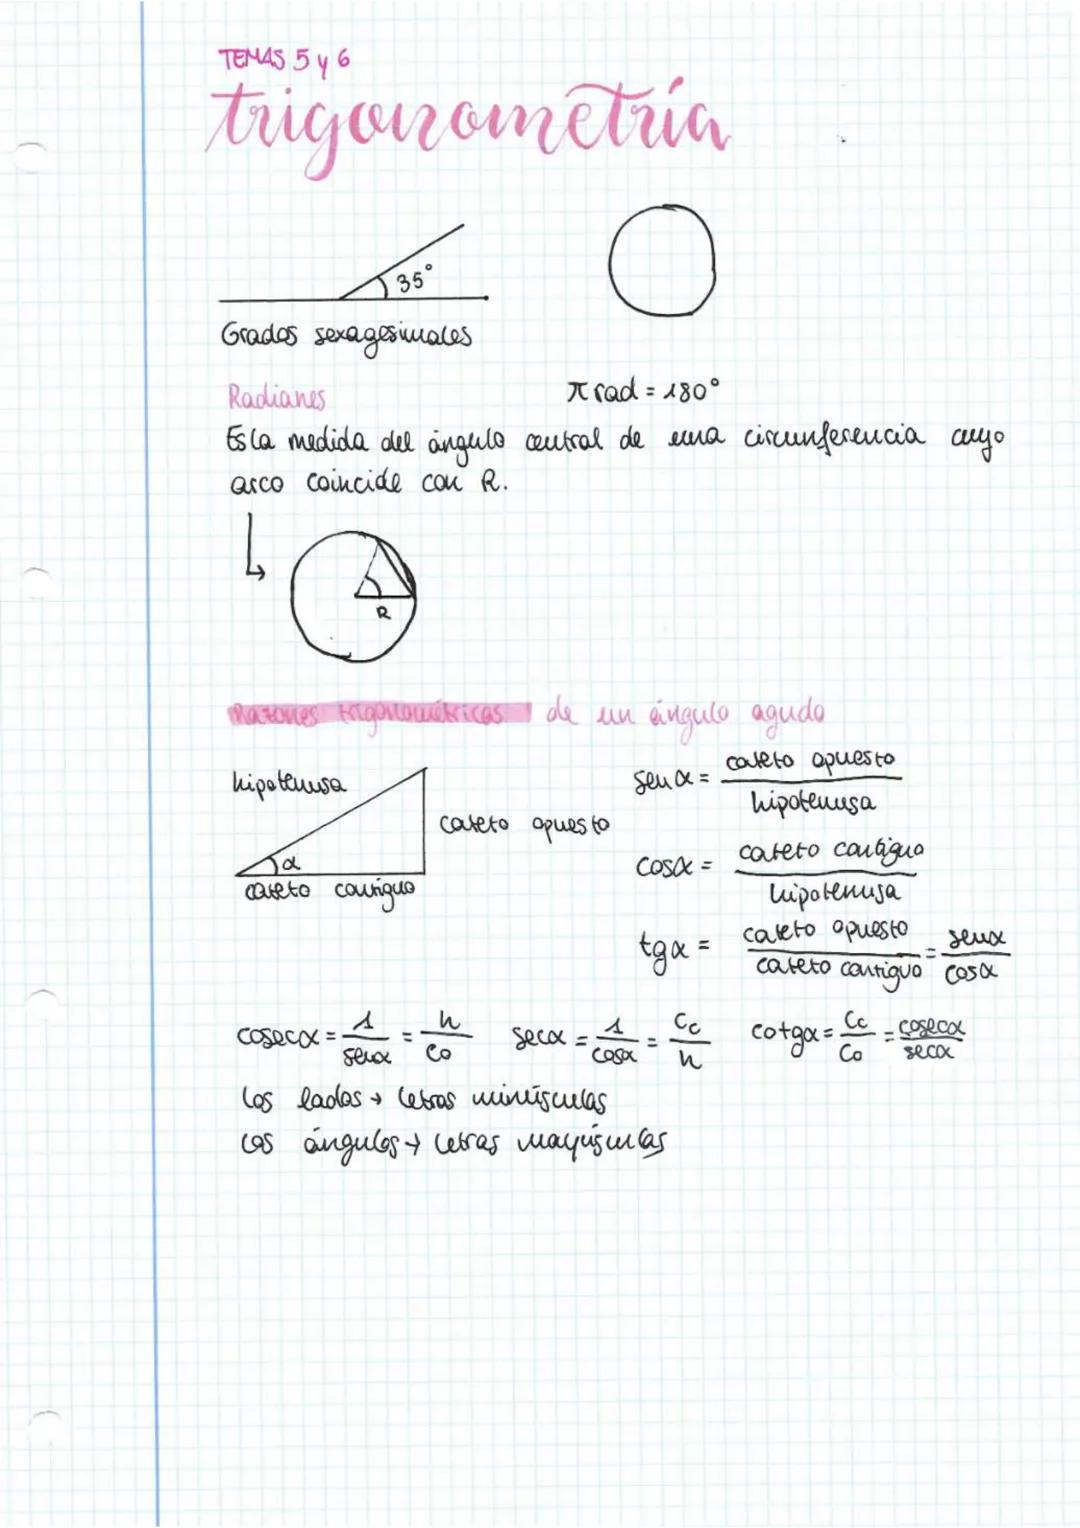 TEMAS 5 y 6
trigonometría
35°
Grados sexagesimales
Radianes
π rad = 180°
Es la medida del ángulo central de una circunferencia cuyo
arco coincide con R.
R
Razones trigonométricas de un ángulo agudo
hipotenusa
cateto opuesto
α
cateto contiguo
sen α = cateto opuesto / hipotenusa
cosα = cateto contiguo / hipotenusa
tgα = cateto opuesto / cateto contiguo = senα / cosα
cosecα = 1 / senα = h / co
secα = 1 / cosα = Cc / h
cotgα = Cc / Co = cosecα / secα
Los lados → letras minúsculas
Los ángulos → letras mayúsculas